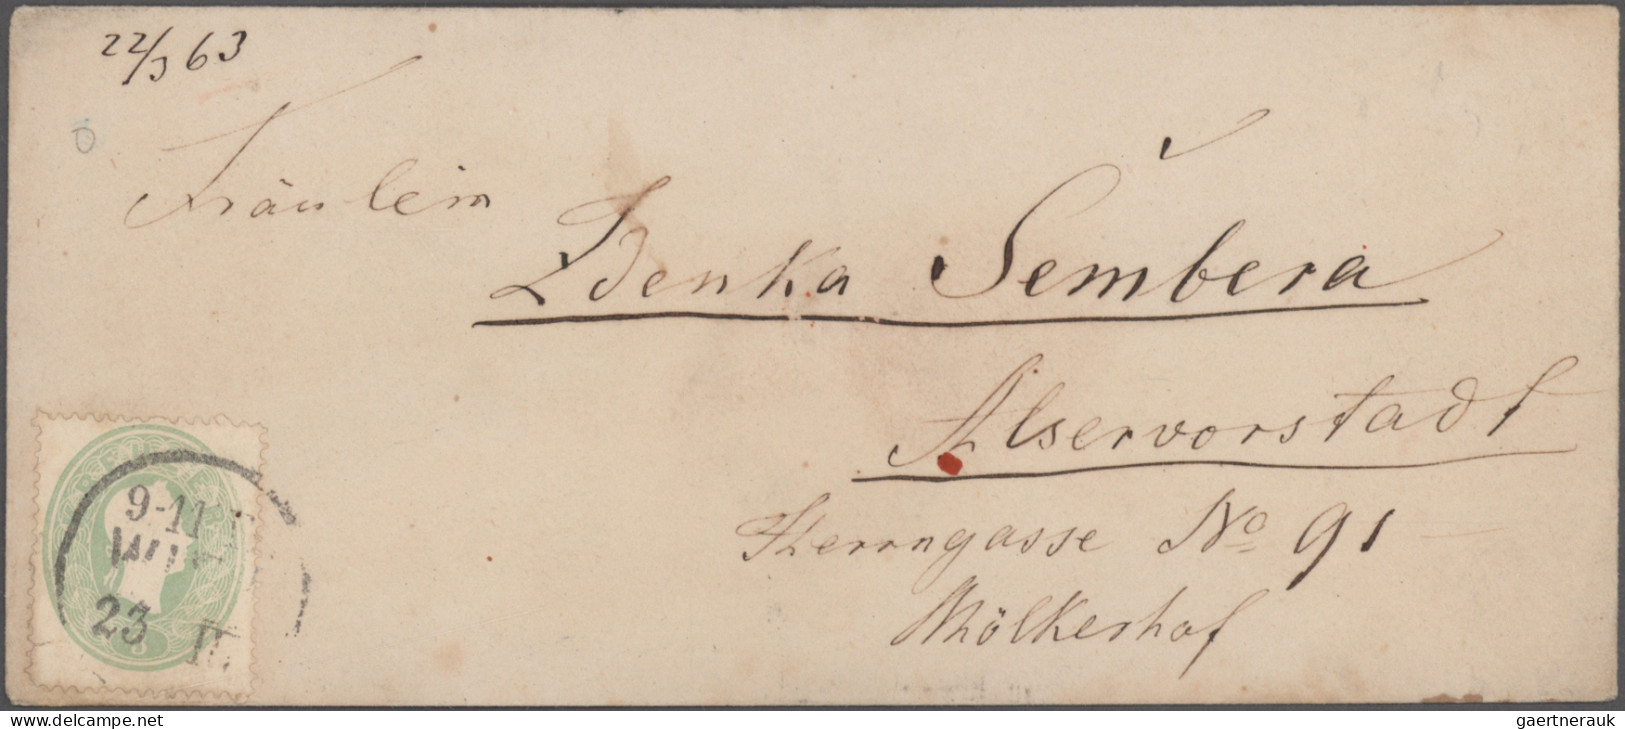 22/3 63
Fräulein
Zdenka Šembera
Alservorstadt
Herrngasse No 91
Mölkerhof
9-11
WIE
23
www.delcampe.net
gaertnerauk